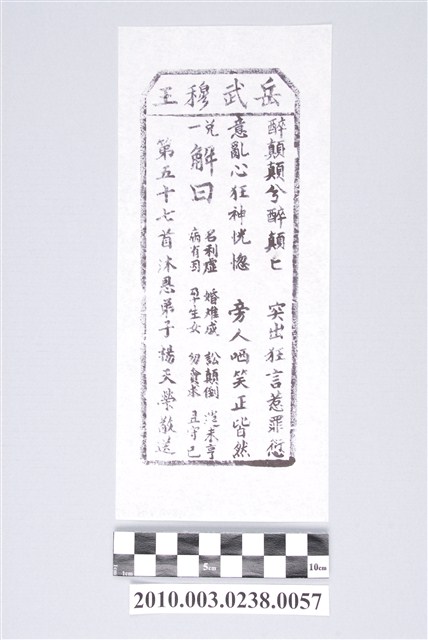 岳武穆王
醉顛顛兮醉顛匕 突出狂言惹罪愆
意亂心狂神恍惚 旁人哂笑正皆然
兌一 解曰
名利虛 婚难成 訟顛倒 運未亨
病有因 孕生女 勿貪求 且守己
第五十七首沐恩弟子楊天榮敬送
1cm 5cm 10cm
2010.003.0238.0057